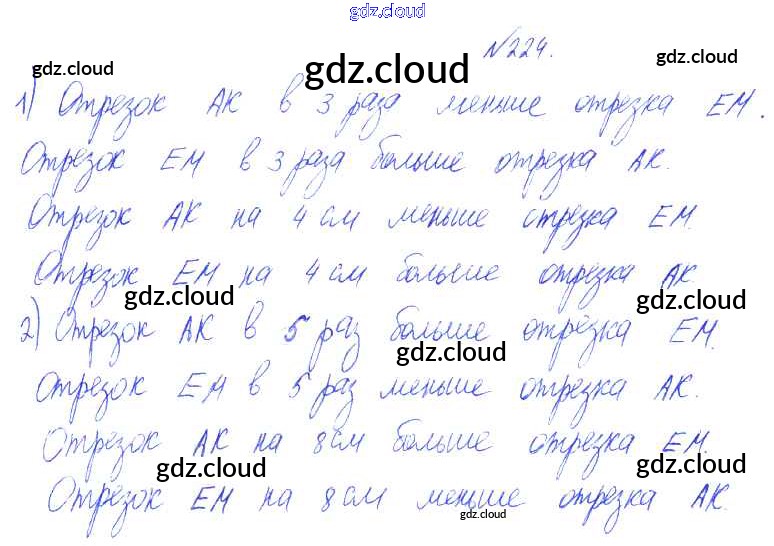 gdz.cloud
№224.
gdz.cloud gdz.cloud gdz.cloud
1) Отрезок АК в 3 раза меньше отрезка ЕМ.
Отрезок ЕМ в 3 раза больше отрезка АК.
Отрезок АК на 4 см меньше отрезка ЕМ.
Отрезок ЕМ на 4 см больше отрезка АК.
gdz.cloud gdz.cloud
2) Отрезок АК в 5 раз больше отрезка ЕМ.
gdz.cloud
Отрезок ЕМ в 5 раз меньше отрезка АК.
Отрезок АК на 8 см больше отрезка ЕМ.
gdz.cloud gdz.cloud
Отрезок ЕМ на 8 см меньше отрезка АК.
gdz.cloud